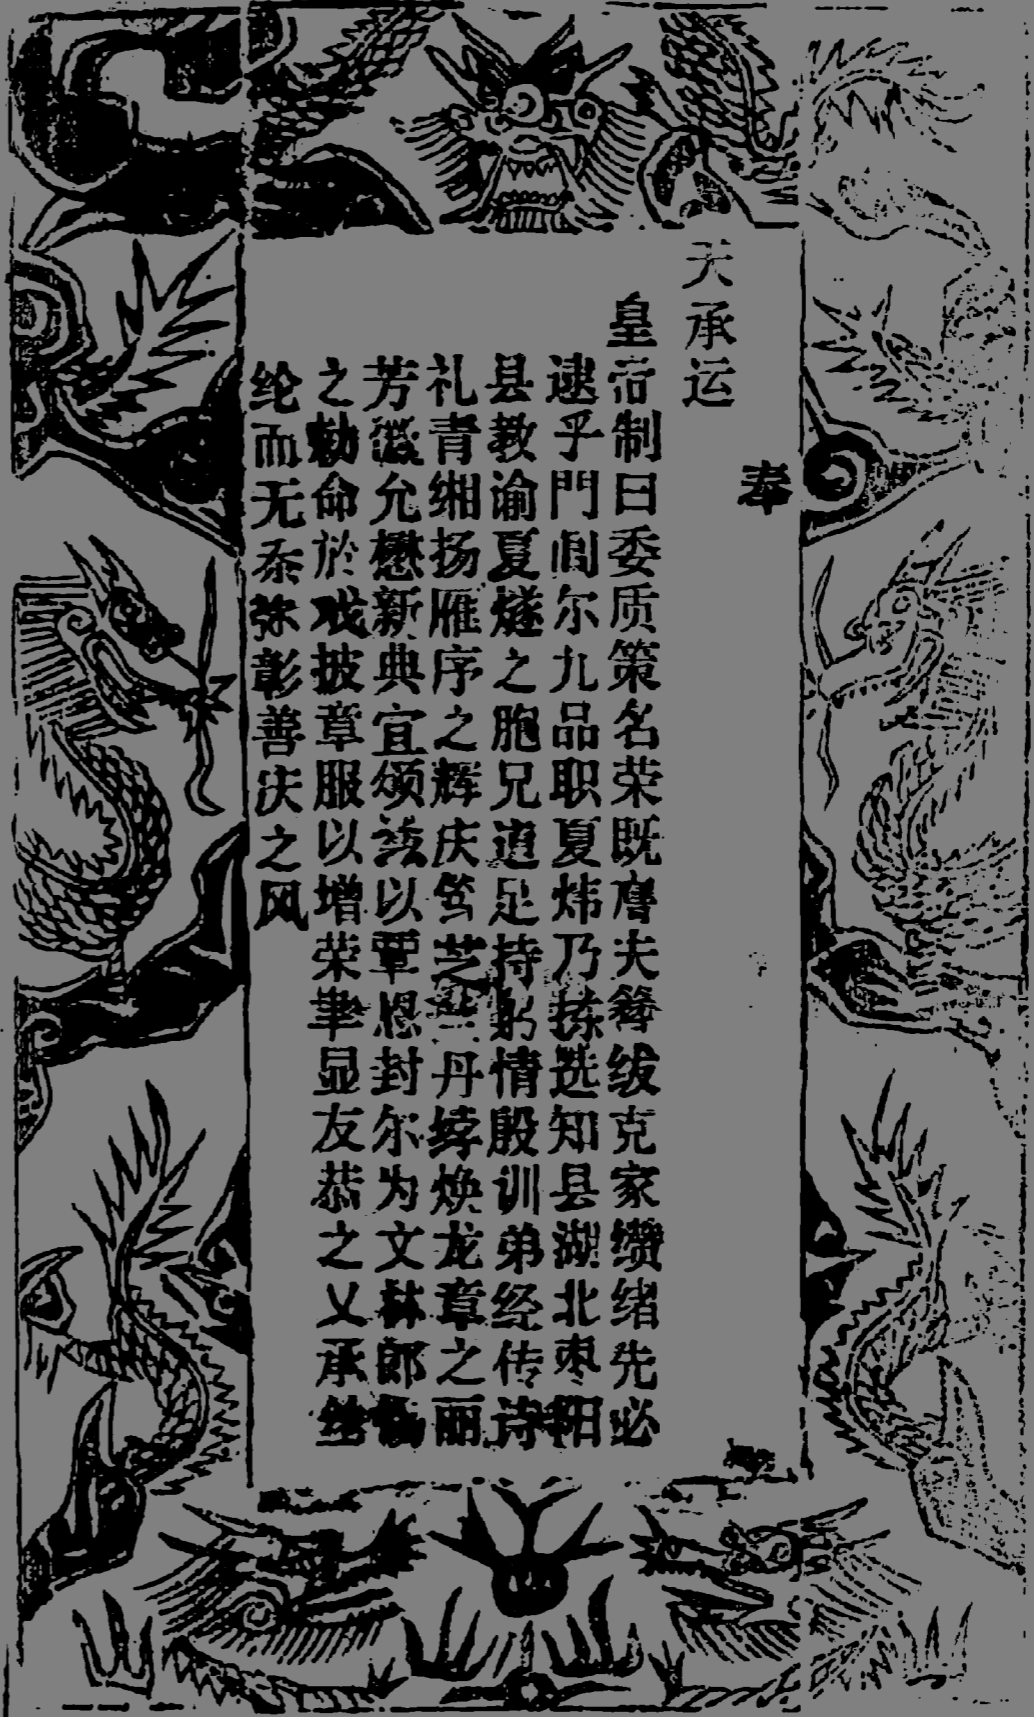 奉
天承运
皇帝制曰委质策名荣既膺夫簪绂克家缵绪先必
逮乎門闾尔九品职夏炜乃拣选知县湖北枣阳
县教谕夏燧之胞兄道足持躬情殷训弟经传诗
礼青缃扬雁序之辉庆笃芝兰丹綍焕龙章之丽
芳徽允懋新典宜颁兹以覃恩封尔为文林郎锡
之勅命於戏披章服以增荣聿显友恭之乂承丝
纶而无忝弥彰善庆之风